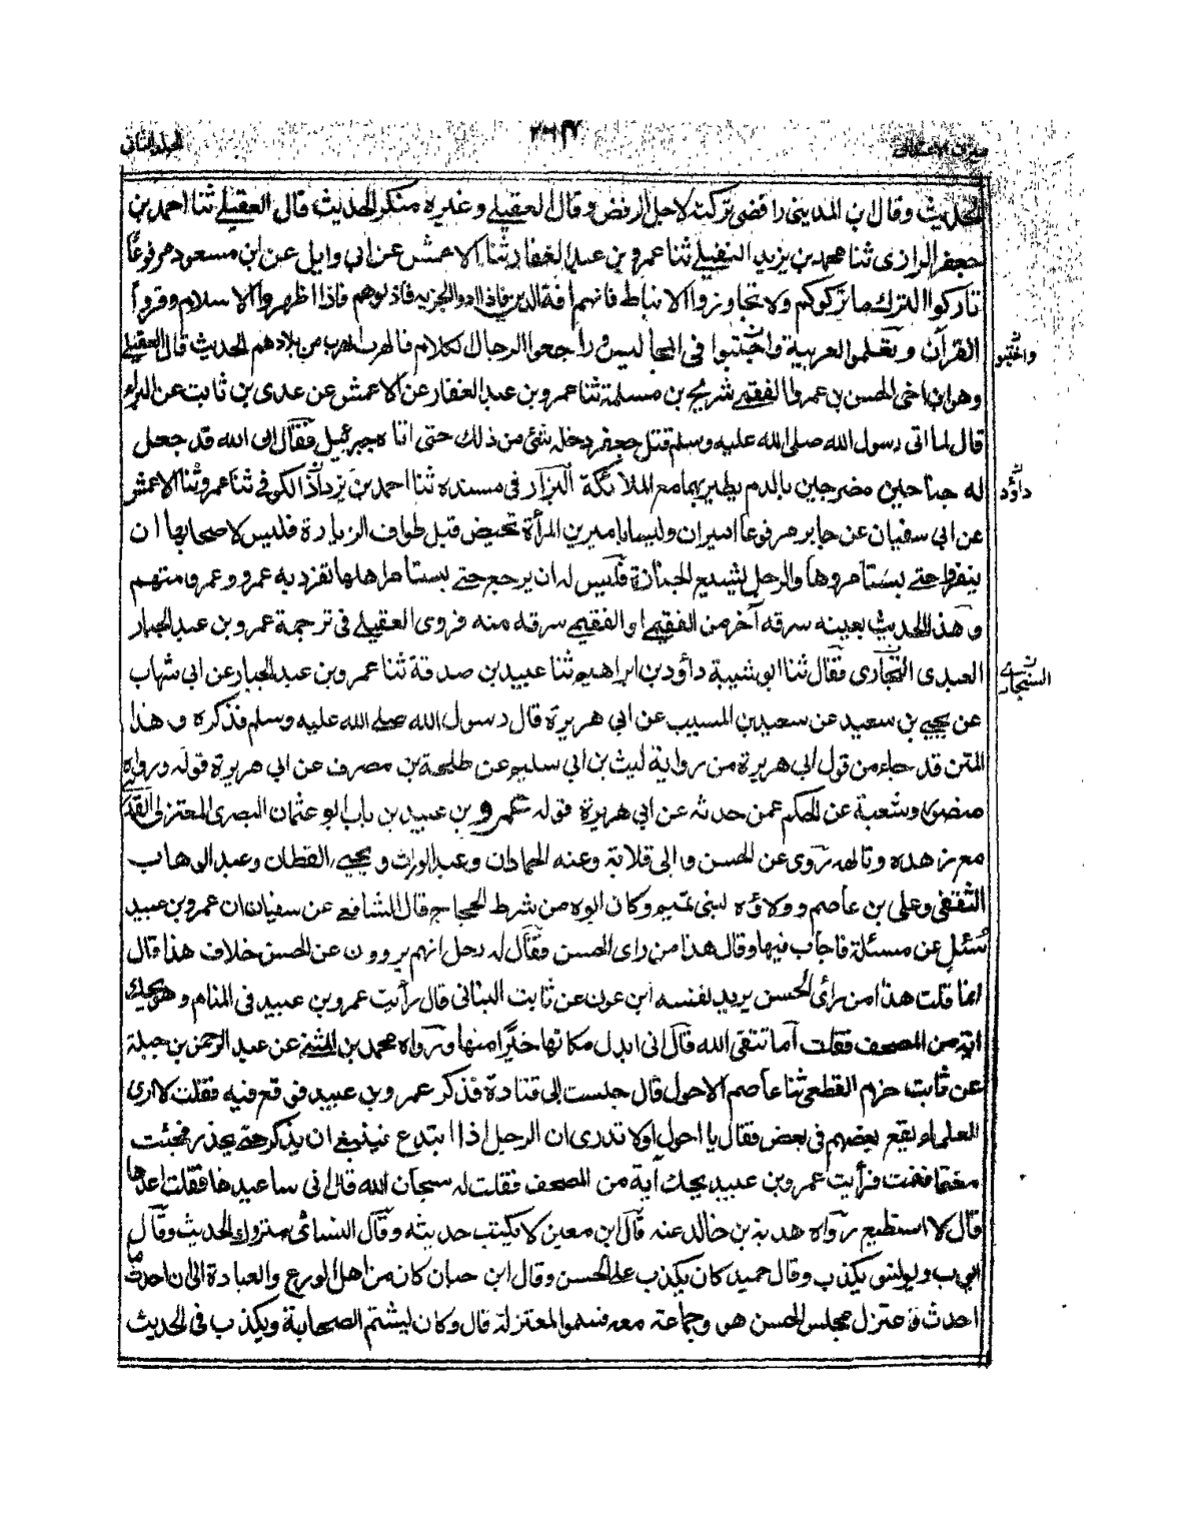 ميزان الاعتدال
الجلد الثانى
الحديث وقال ابن المدينى رافضى تركته لاجل الرفض وقال العقيلے وغيره منكر الحديث قال العقيلے ثنا احمد بن
جعفر الرازى ثنا محمد بن يزيد النفيلے ثنا عمرو بن عبد الغفار ثنا الاعمش عن ابى وايل عن ابن مسعود مرفوعًا
تاركوا الترك ما تركوكم ولا تجاوزوا الانباط فانهم آفة الدين فاذا ادوا الجزيه فاذلوهم فاذا اظهروا الاسلام وقرؤا
القرآن وتعلموا العربية واجتبوا فى المجاليس وراجعوا الرجال الكلام فالهرب الهرب من بلادهم الحديث قال العقيلے
واحتبوا
وهو ابن اخى الحسن بن عمرو الفقيمے شريح بن مسلمة ثنا عمرو بن عبد الغفار عن الاعمش عن عدى بن ثابت عن البراء
قال لما اتى رسول الله صلى الله عليه وسلم قتل جعفر دخله شئ من ذلك حتى اتاه جبرئيل فقال ان الله قد جعل
له جناحين مضرجين بالدم يطير بهما مع الملائكة البزار فى مسنده ثنا احمد بن يزداذ الكوفى ثنا عمرو ثنا الاعمش
داؤد
عن ابى سفيان عن جابر مرفوعا اميران وليسا باميرين المرأة تحيض قبل طواف الزيارة فليس لاصحابها ان
ينفروا حتے يستامروها والرجل يشيع الجنازة فليس له ان يرجع حتے يستامر اهلها تفرد به عمرو وعمرو متهم
وهذا الحديث بعينه سرقه آخر من الفقيمے او الفقيمے سرقه منه فروى العقيلے فى ترجمة عمرو بن عبد الجبار
العبدى النجارى فقال ثنا ابو شيبة داؤد بن ابراهيم ثنا عبيد بن صدقة ثنا عمرو بن عبد الجبار عن ابى شهاب
السنجارے
عن يحيے بن سعيد عن سعيد بن المسيب عن ابى هريرة قال رسول الله صلے الله عليه وسلم فذكره وهذا
المتن قد جاء من قول ابى هريرة من رواية ليث بن ابى سليم عن طلحة بن مصرف عن ابى هريرة قوله ورواه
منصور وشعبة عن الحكم عمن حدثه عن ابى هريرة قوله عمرو بن عبيد بن باب ابو عثمان البصرى المعتزلى القدرے
مع زهده وتالهه روى عن الحسن وابى قلابة وعنه الحمادان وعبد الوارث ويحيے القطان وعبد الوهاب
الثقفى وعلى بن عاصم وولاؤه لبنى تميم وكان ابوه من شرط الحجاج قال الشافعے عن سفيان ان عمرو بن عبيد
سُئل عن مسئلة فاجاب فيها وقال هذا من راى الحسن فقال له رجل انهم يروون عن الحسن خلاف هذا قال
انما قلت هذا من رأى الحسن يريد لنفسه ابن عون عن ثابت البنانى قال رأيت عمرو بن عبيد فى المنام وهو يحك
اٰية من المصحف فقلت اما تتقى الله قال انى ابدل مكانها خيرًا منها ورواه محمد بن المثنے عن عبد الرحمن بن جبلة
عن ثابت حزم القطعى ثنا عاصم الاحول قال جلست الى قتادة فذكر عمرو بن عبيد فوقع فيه فقلت لا ارى
العلماء يقع بعضهم فى بعض فقال يا احول اولا تدرى ان الرجل اذا ابتدع فينبغے ان يذكر حتے يحذر فجئت
مغتما فنمت فرأيت عمرو بن عبيد يحك آية من المصحف فقلت له سبحان الله قال انى ساعيدها فقلت اعدها
قال لا استطيع رواه هدبة بن خالد عنه قال ابن معين لا يكتب حديثه وقال النسائى متروك الحديث وقال
ايوب ويونس يكذب وقال حميد كان يكذب على الحسن وقال ابن حبان كان من اهل الورع والعبادة الى ان احدث ما
احدث فاعتزل مجلس الحسن هو وجماعة معه فسموا المعتزلة قال وكان يشتم الصحابة ويكذب فى الحديث